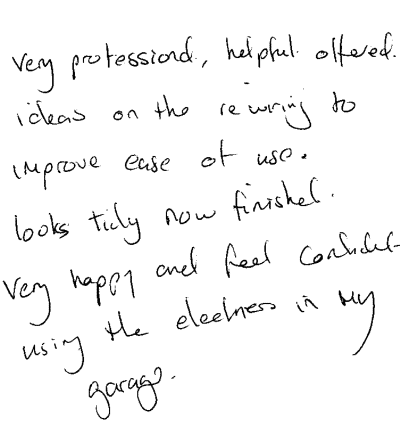 Very professional, helpful. offered.
ideas on the rewiring to
improve ease of use.
looks tidy now finished.
Very happy and feel confident
using the electrics in my
garage.